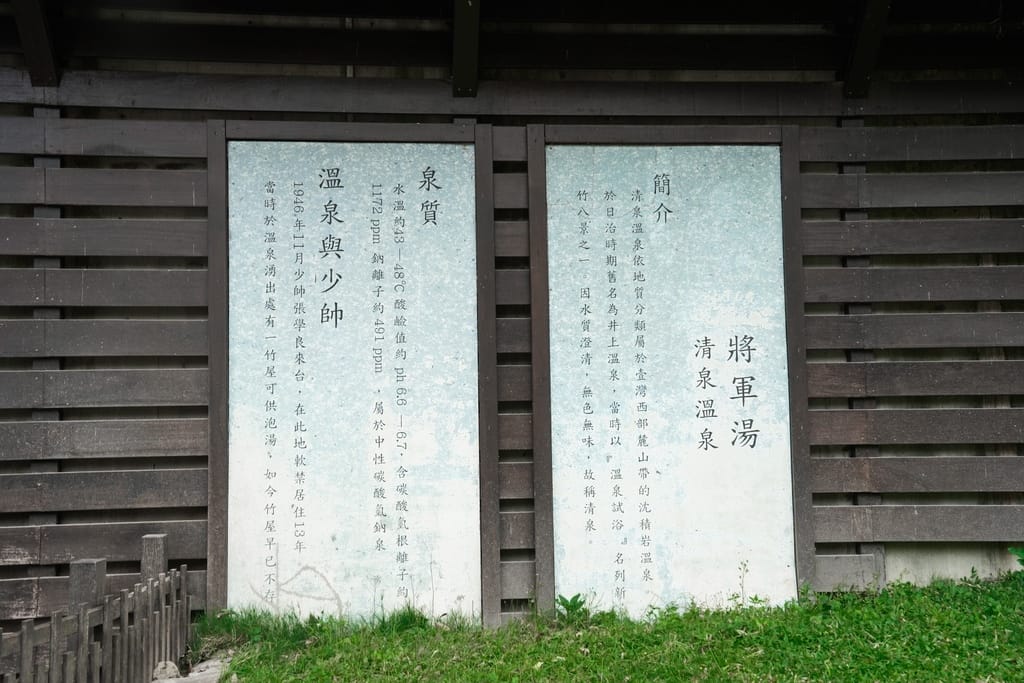 將軍湯
清泉溫泉
簡介
清泉溫泉依地質分類屬於臺灣西部麓山帶的沈積岩溫泉
於日治時期舊名為井上溫泉，當時以『溫泉試浴』名列新
竹八景之一。因水質澄清，無色無味，故稱清泉。
泉質
水溫約43—48℃酸鹼值約 ph 6.6—6.7，含碳酸氫根離子約
1172 ppm 鈉離子約 491 ppm ，屬於中性碳酸氫鈉泉
溫泉與少帥
1946年11月少帥張學良來台，在此地軟禁居住13年
當時於溫泉湧出處有一竹屋可供泡湯，如今竹屋早已不存